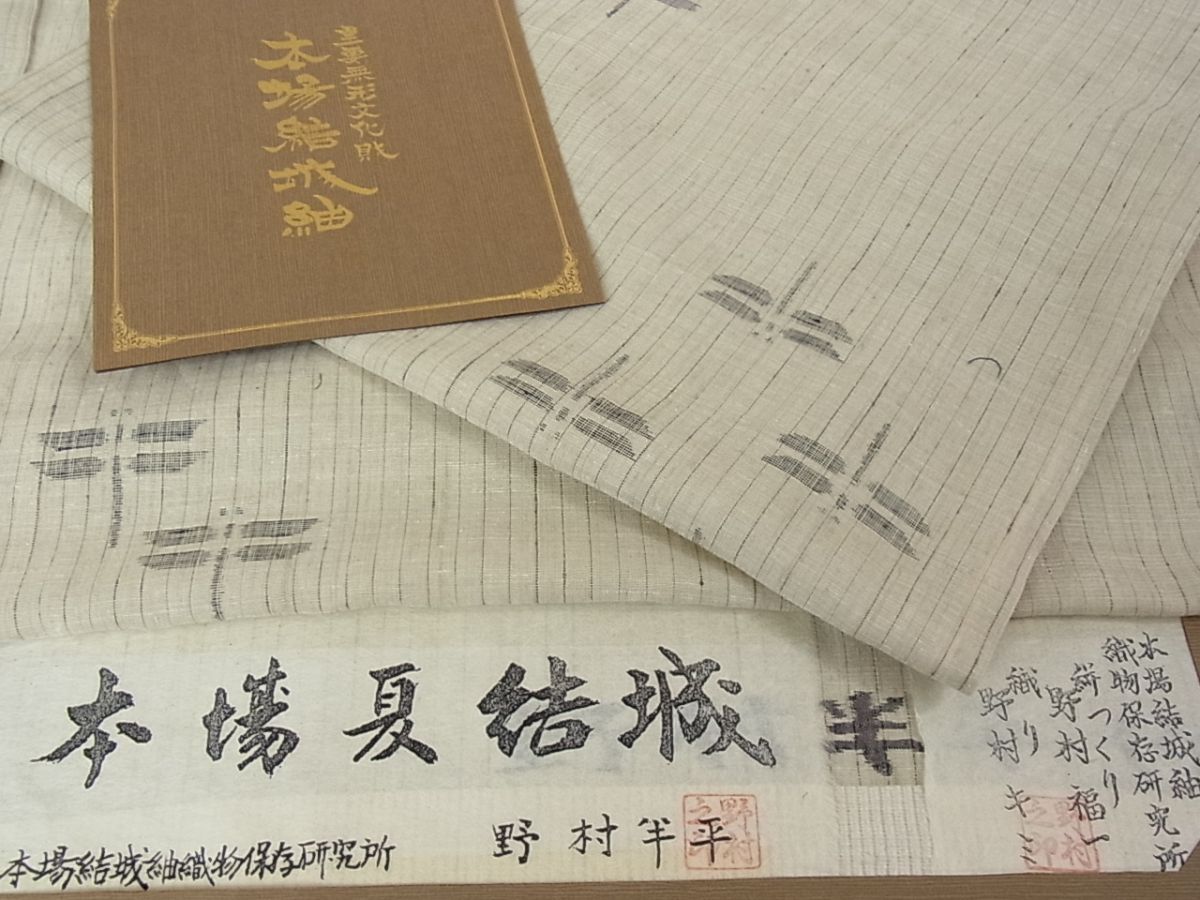 重要無形文化財
本場結城紬
本場夏結城
半
野村半平
野村之印
本場結城紬織物保存研究所
本場結城紬
織物保存研究所
絣つくり
野村福一
織り
野村キミ
野村之印